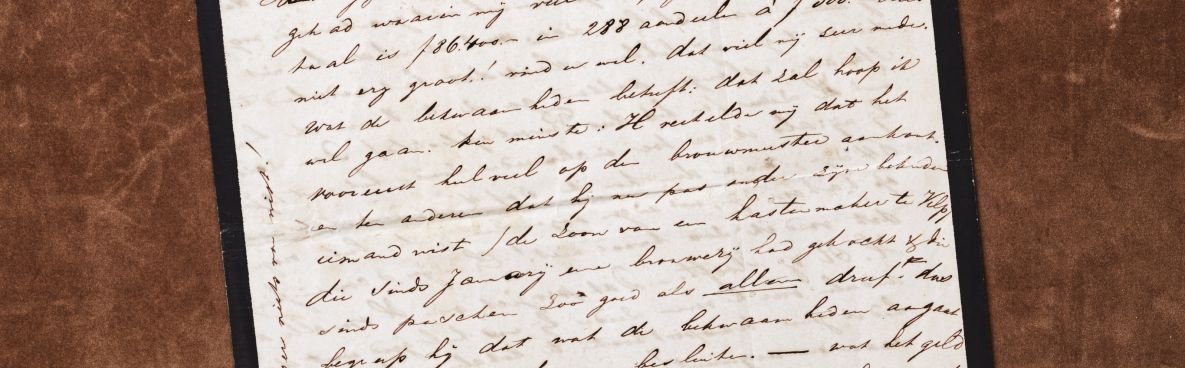 gehad waarin mij
taal is ƒ 86.400.- in 288 aandeelen à ƒ 300.
niet erg groot! vind u wel. dat viel mij zeer mede.
Wat de bekwaamheden betreft: dat zal hoop ik
wel gaan. ten minste: H vertelde mij dat het
vooreerst heel veel op den brouwmeester aankomt.
en ten anderen dat hij nu pas onder zijne bekenden
iemand wist /de zoon van een kastenmaker te
die sinds Januarij eene brouwerij had gekocht & die
sinds paschen zoo goed als alleen dreef. dus
begreep hij dat wat de bekwaamheden aangaat
besluiten. — wat het geld
niets van niet!